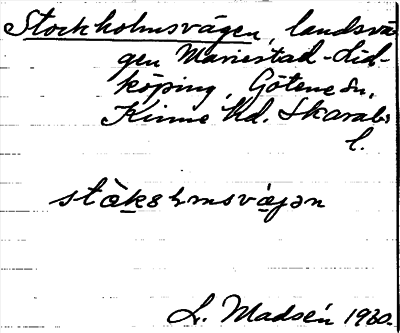 Stockholmsvägen, landsvä-
gen Mariestad-Lid-
köping, Götene sn,
Kinne hd. Skarabs
l.
ståkshmsvägen
L. Madsén 1930.